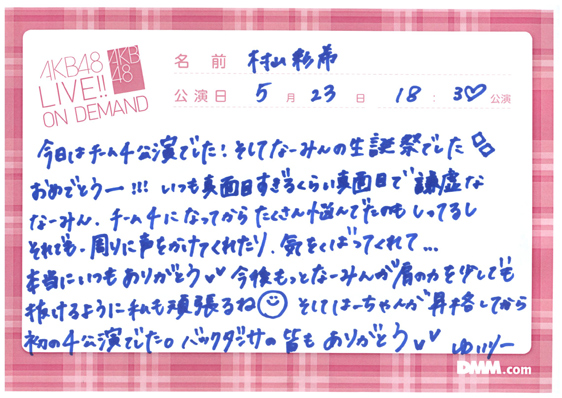 AKB48
LIVE!!
ON DEMAND
AKB
48
名前 村山彩希
公演日 5月23日 18:30公演
今日はチーム4公演でした!そしてなーみんの生誕祭でした
おめでとうー!!!いつも真面目すぎるくらい真面目で謙虚な
なーみん、チーム4になってからたくさん悩んでたのもしってるし
それでも周りに声をかけてくれたり、気をくばってくれて...
本当にいつもありがとう 今後もっとなーみんが肩の力を少しでも
抜けるように私も頑張るね そしてはーちゃんが昇格してから
初の4公演でした。バックダンサの皆もありがとう ゆいりー
DMM.com